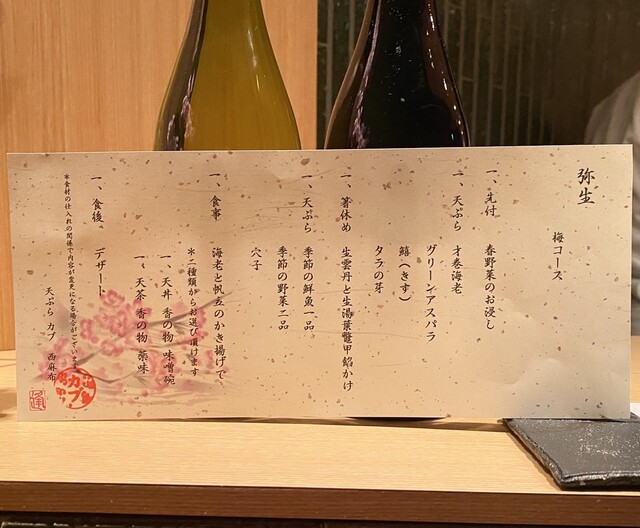 弥生
梅コース
一、先付 春野菜のお浸し
一、天ぷら 才巻海老
グリーンアスパラ
鱚(きす)
タラの芽
一、箸休め 生雲丹と生湯葉鼈甲餡かけ
一、天ぷら 季節の鮮魚一品
季節の野菜二品
穴子
一、食事 海老と帆立のかき揚げで、
※二種類からお選び頂けます
一、天丼 香の物 味噌碗
一、天茶 香の物 薬味
一、食後 デザート
※食材の仕入れの関係で内容が変更になる場合がございます。
天ぷら カブ 西麻布